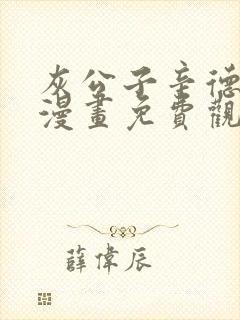 灰公子辛德
漫畫免費觀
薛偉辰